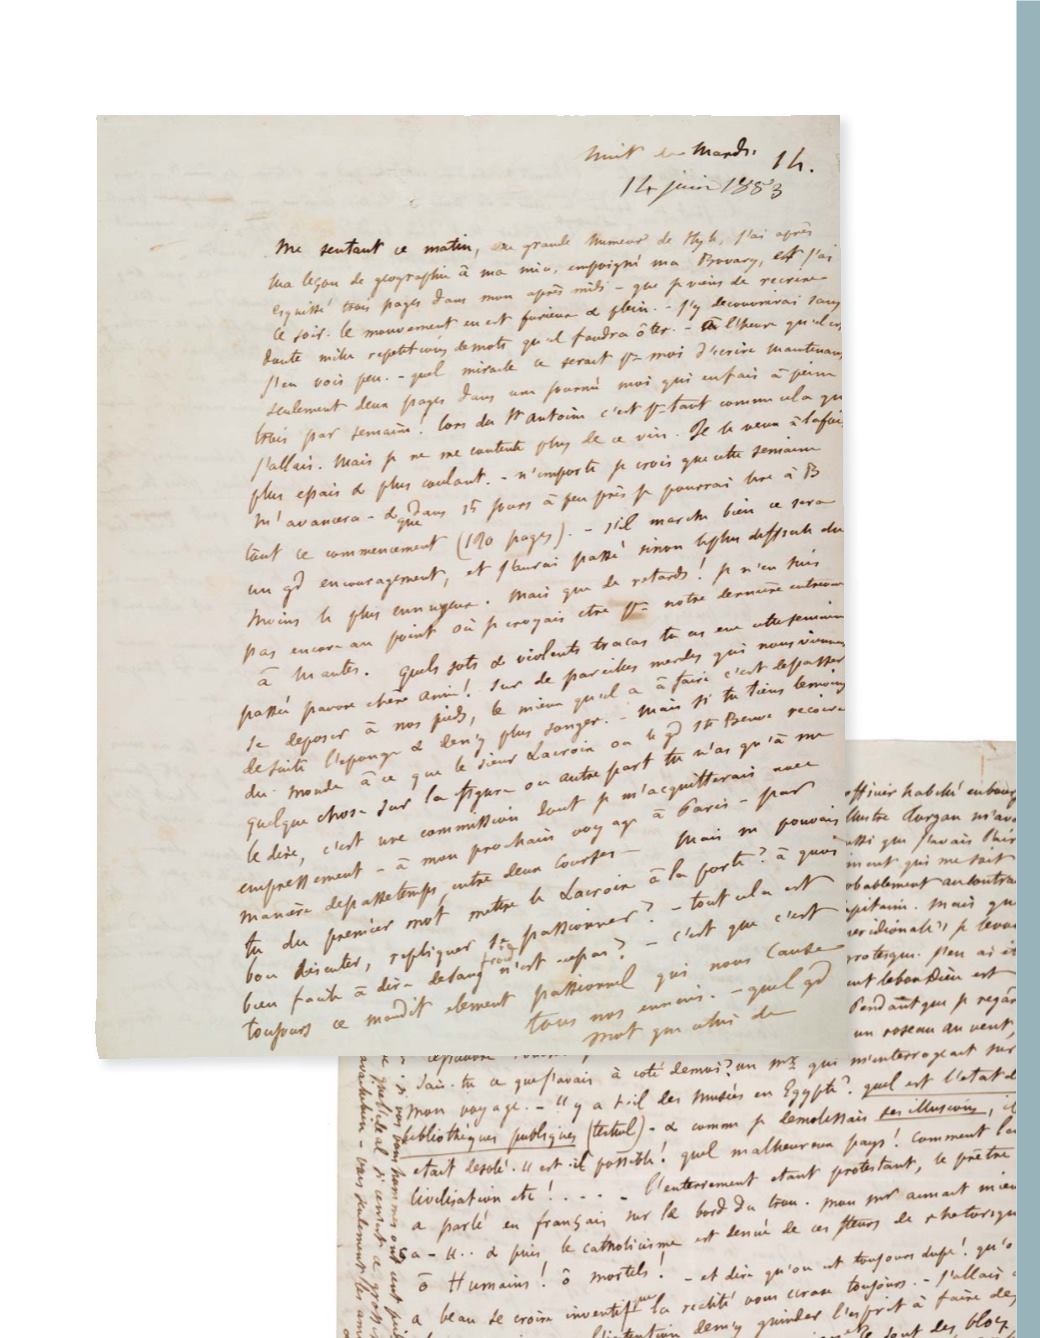 Nuit de Mardi. 14.
14 juin 1853
Me sentant ce matin, en grande humeur de style, j'ai après
ma leçon de géographie à ma nièce, empoigné ma Bovary, et j'ai
esquissé trois pages dans mon après midi - que je viens de recrire
ce soir. le mouvement en est furieux & plein. - j'y decouvrirai sans
doute mille repetitions de mots qu'il faudra ôter. - à l'heure qu'il est
j'en vois peu. - quel miracle ce serait pr moi d'écrire maintenant
seulement deux pages dans une journée moi qui en fais à peine
trois par semaine! lors du St Antoine c'est pr tant comme cela que
j'allais. Mais je ne me contente plus de ce vin. Je le veux à la fois
plus epais & plus coulant. - n'importe je crois que cette semaine
m'avancera - & que dans 15 jours à peu près je pourrai lire à B
tout ce commencement (120 pages). - s'il marche bien ce sera
un gd encouragement, et j'aurai passé sinon le plus difficile du
moins le plus ennuyeux. Mais que de retards! je n'en suis
pas encore au point où je croyais etre pr notre dernière entrevue
à Mantes. Quels sots & violents tracas tu as eue cette semaine
passée pauvre chère amie! Sur de pareilles merdes qui nous viennent
se deposer à nos pieds, le mieux qu'il y a à faire c'est de passer
de suite l'éponge & den'y plus songer. - Mais si tu tiens le moins
du monde à ce que le sieur Lacroix ou le gd Ste Beuve recoive
quelque chose sur la figure ou autre part tu n'as qu'à me
le dire, c'est une commission dont je m'acquitterais avec
empressement - à mon prochain voyage à Paris - par
manière de passetemps, entre deux courses - Mais ne pouvais
tu du premier mot mettre le Lacroix à la porte? à quoi
bon discuter, repliquer se passionner? - tout cela est
bien facile à dire de sang froid n'est-cepas? - c'est que c'est
toujours ce maudit element passionnel qui nous cause
tous nos ennuis. - quel gd
mot que celui de
officier
illustre
aussi que j'avais
qui me fait
probablement au contraire
capitaine. Mais
meridionale") je
grotesque. j'en ai
lebon Dieu est
Pendant que je
un roseau au vent,
Sais-tu ce que j'avais à coté demoi? un mr qui m'interrogeait sur
mon voyage. - "y a t-il des musées en Egypte? quel est l'etat
bibliothèques publiques (textuel) - & comme je demolissais ses illusions, il
etait desolé. "est-il possible! quel malheureux pays! comment la
civilisation etc! . . . . - l'enterrement etant protestant, le prêtre
a parlé en français sur le bord du trou. mon mr aimait mieux
ça - "... & puis le catholicisme est denué de ces fleurs de rhetorique
ô Humains! ô mortels! - et dire qu'on est toujours dupe! qu'on
a beau se croire inventif que la realité vous ecrase toujours. - j'allais
l'intention den'y guinder l'esprit à faire des